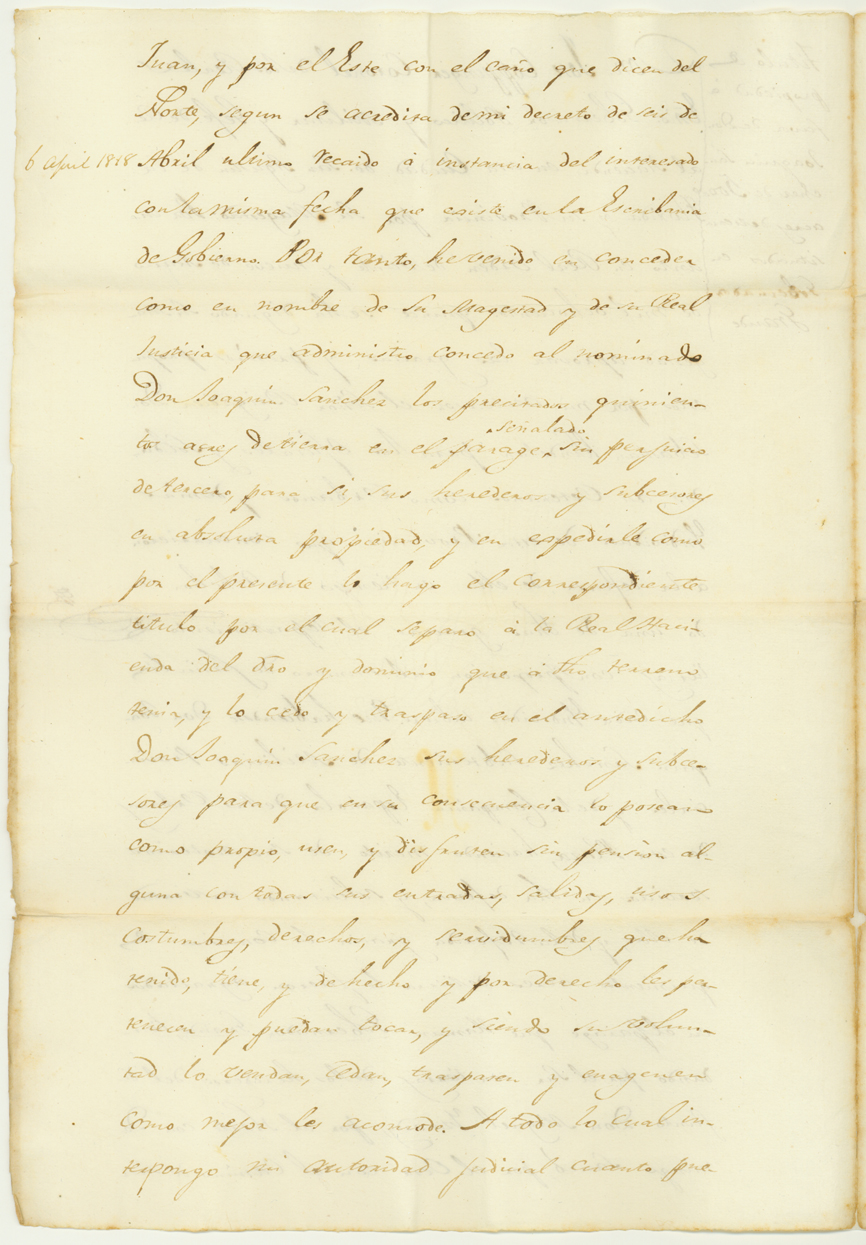 Juan, y por el Este con el caño que dicen del
Norte, segun se acredita de mi decreto de seis de
6 April 1818 Abril ultimo recaido á instancia del interesado
con la misma fecha que existe en la Escribania
de Gobierno. Por tanto, he venido en conceder
como en nombre de Su Magestad y de su Real
Justicia que administro concedo al nominado
Don Joaquin Sanchez los precitados quinien-
tos acres de tierra en el parage señalado sin perjuicio
de tercero, para si, sus herederos y subcesores
en absoluta propiedad, y en expedirle como
por el presente lo hago el correspondiente
titulo por el cual separo á la Real Haci-
enda del dro y dominio que á dho terreno
tenia, y lo cedo y traspaso en el antedicho
Don Joaquin Sanchez sus herederos y subce-
sores para que en su consecuencia lo posean
como propio, usen, y disfruten sin pension al-
guna con todas sus entradas, salidas, usos
costumbres, derechos, y servidumbres que ha
tenido, tiene, y de hecho y por derecho les per-
tenecen y puedan tocar, y siendo su volun-
tad lo vendan, cedan, traspasen y enagenen
como mejor les acomode. A todo lo cual in-
terpongo mi autoridad judicial cuanto pue-